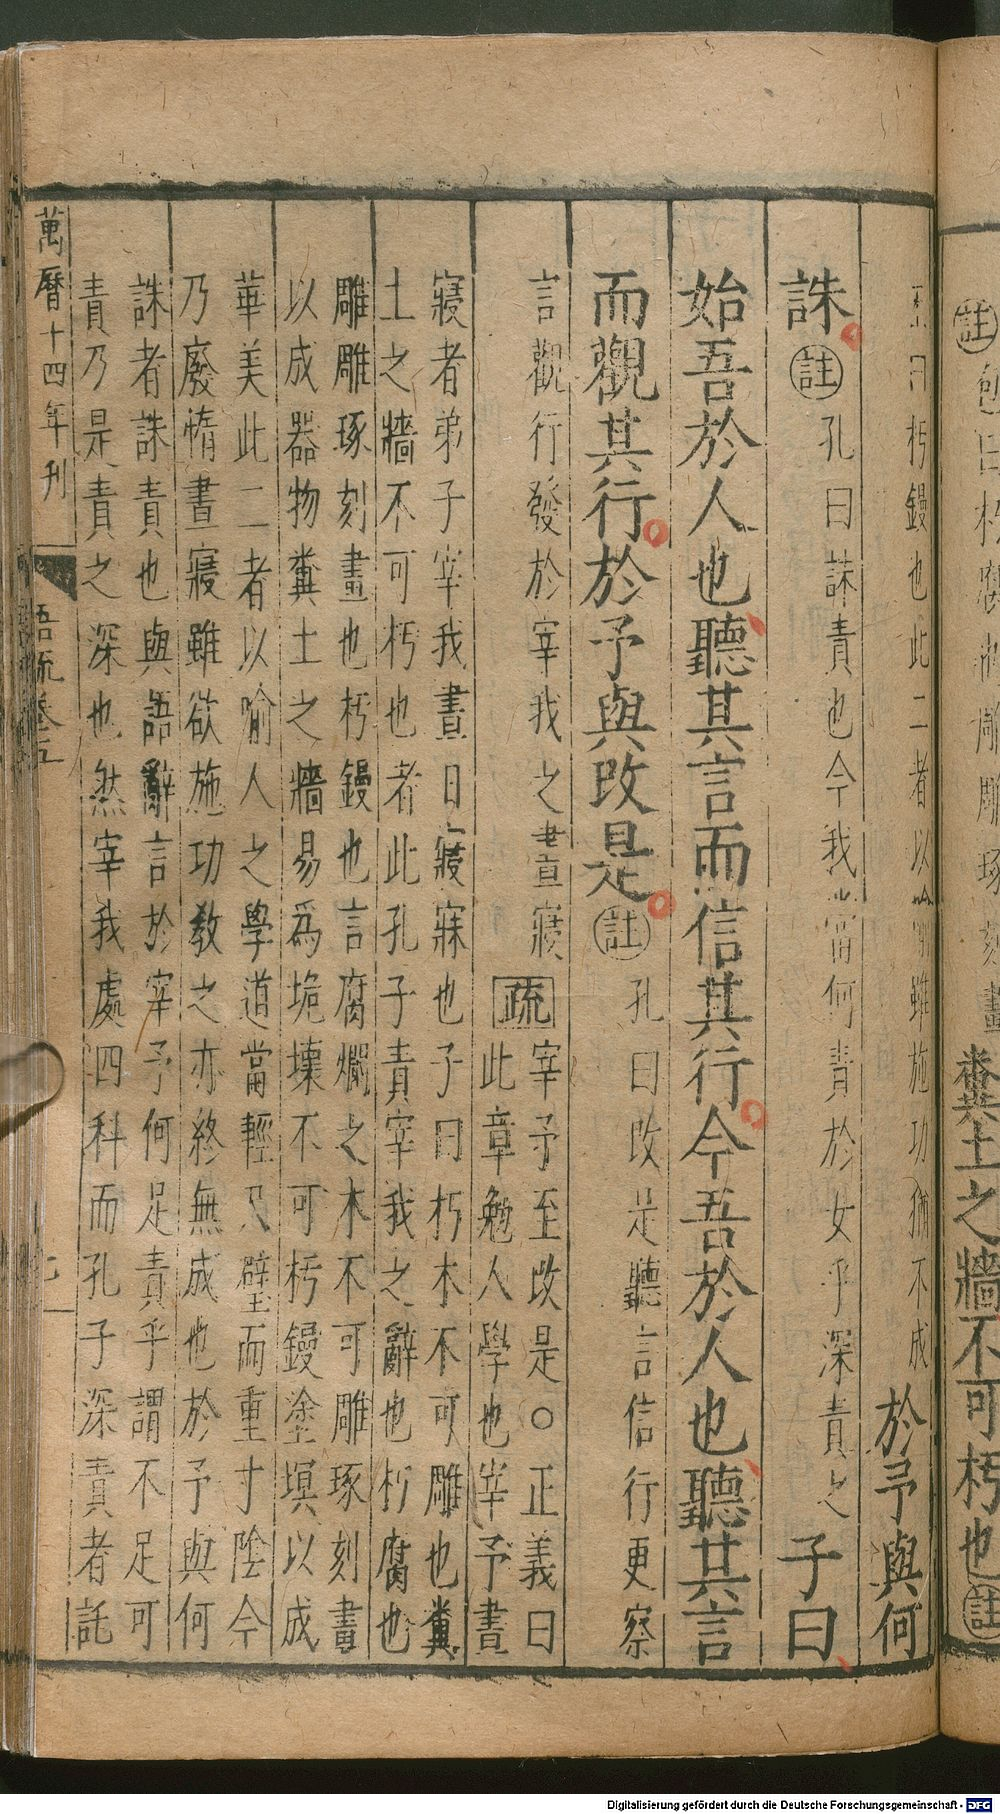 土之牆不可杇也註
曰杇鏝也此二者以喻雖施功猶不成 於予與何
誅註 孔曰誅責也今我當何責於女乎深責之 子曰
始吾於人也聽其言而信其行今吾於人也聽其言
而觀其行於予與改是註 孔曰改是聽言信行更察
言觀行發於宰我之晝寢 疏 宰予至改是○正義曰
此章勉人學也宰予晝
寢者弟子宰我晝日寢寐也子曰朽木不可雕也糞
土之牆不可杇也者此孔子責宰我之辭也朽腐也
雕雕琢刻畫也杇鏝也言腐爛之木不可雕琢刻畫
以成器物糞土之牆易為垝壞不可杇鏝塗塓以成
華美此二者以喻人之學道當輕尺璧而重寸陰今
乃廢惰晝寢雖欲施功教之亦終無成也於予與何
誅者誅責也與語辭言於宰予何足責乎謂不足可
責乃是責之深也然宰我處四科而孔子深責者託
萬曆十四年刊
語疏卷五
Digitalisierung gefördert durch die Deutsche Forschungsgemeinschaft - DFG